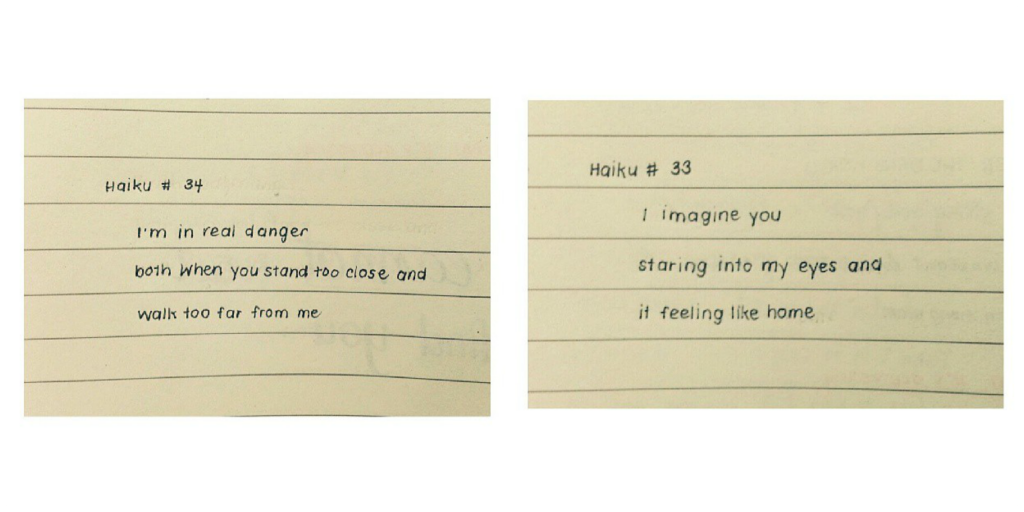 Haiku # 34
I'm in real danger
both when you stand too close and
walk too far from me
Haiku # 33
I imagine you
staring into my eyes and
it feeling like home